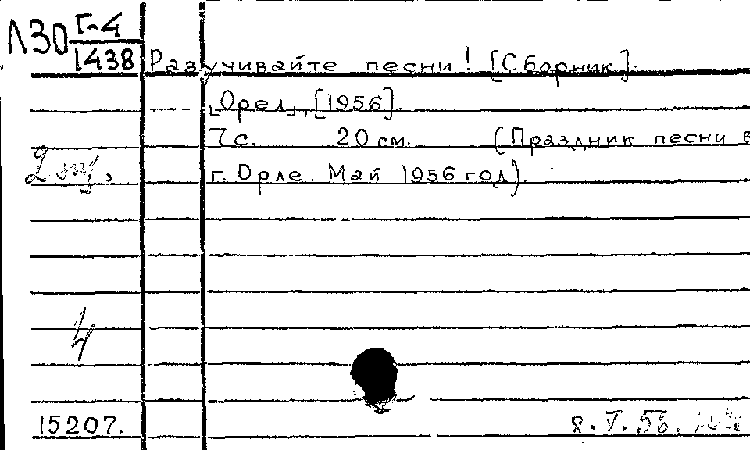 Л30 Г-4
1438
Разучивайте песни! [Сборник].
[Орел], [1956].
7с. 20 см. (Праздник песни в
г. Орле. Май 1956 год).
4
15207.
8.V.56.